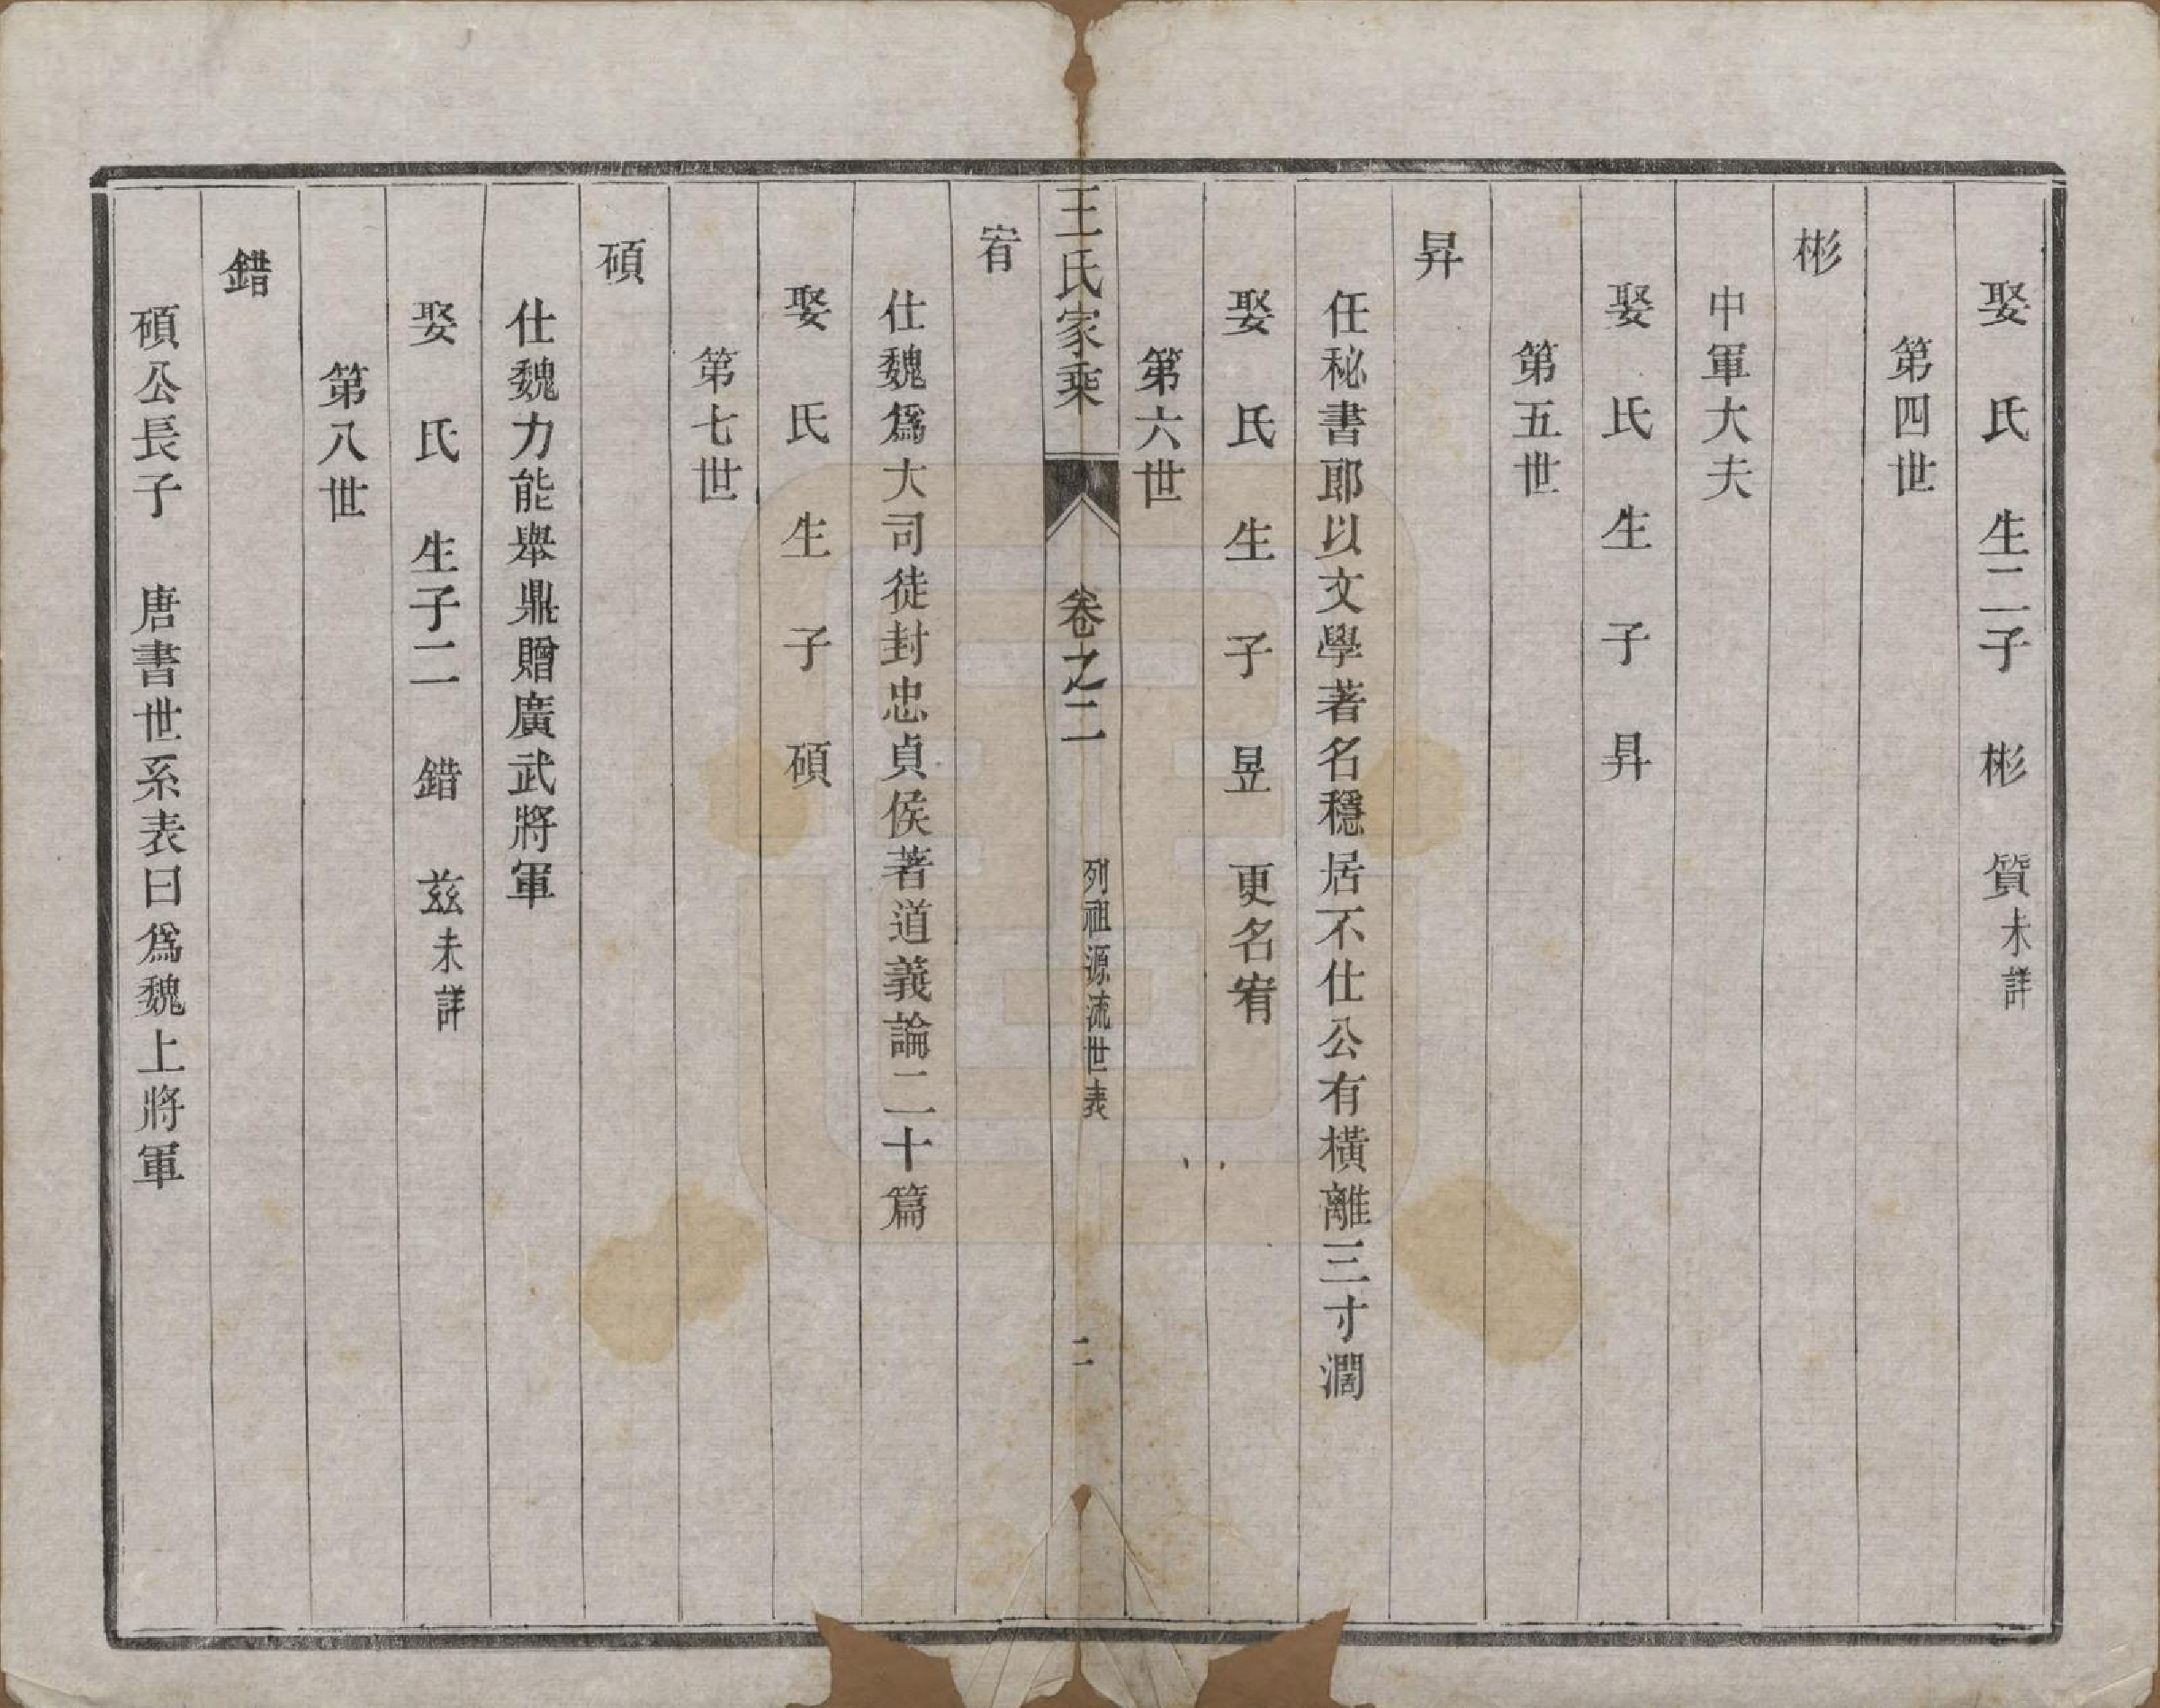 娶　氏　生二子　彬　質未詳
第四世
彬
中軍大夫
娶　氏　生　子　昇
第五世
昇
任秘書郎以文學著名穩居不仕公有橫離三寸濶
娶　氏　生　子　昱　更名宥
第六世
王氏家乘　卷之二　列祖源流世表　二
宥
仕魏爲大司徒封忠貞侯著道義論二十篇
娶　氏　生　子　碩
第七世
碩
仕魏力能舉鼎贈廣武將軍
娶　氏　生子二　錯　玆未詳
第八世
錯
碩公長子　唐書世系表曰爲魏上將軍